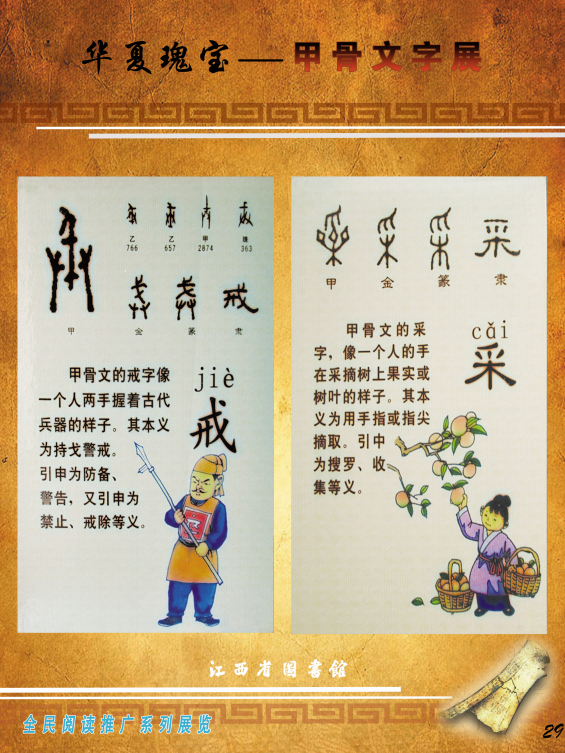 华夏瑰宝——甲骨文字展
乙 乙 甲 珠
766 657 2874 363
甲 金 篆 隶
甲骨文的戒字像
一个人两手握着古代
兵器的样子。其本义
为持戈警戒。
引申为防备、
警告，又引申为
禁止、戒除等义。
jiè
戒
甲 金 篆 隶
甲骨文的采
字，像一个人的手
在采摘树上果实或
树叶的样子。其本
义为用手指或指尖
摘取。引申
为搜罗、收
集等义。
cǎi
采
江西省图書館
全民阅读推广系列展览
29